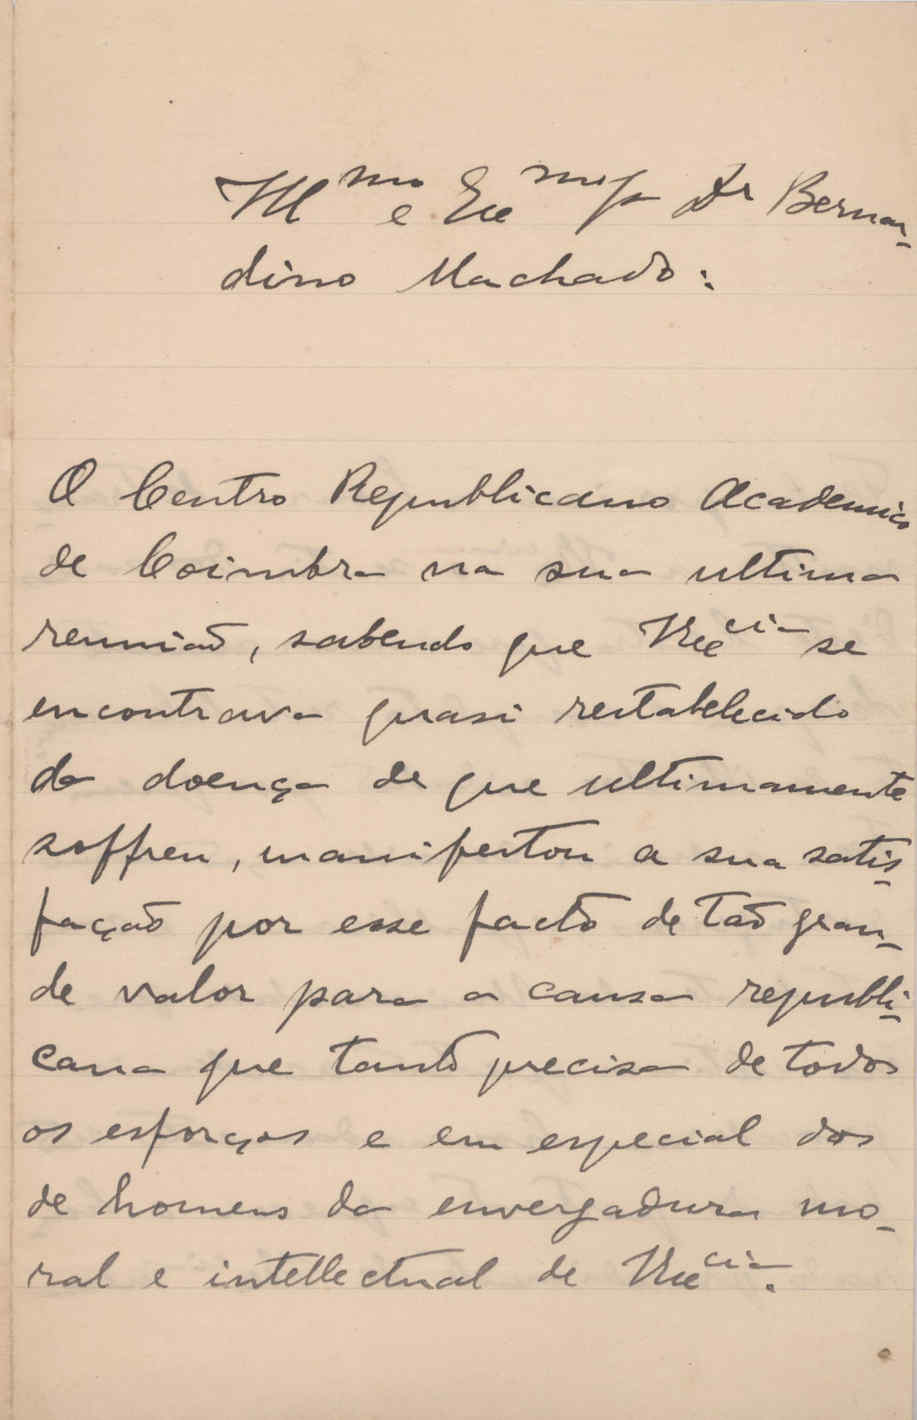 Ill.mo e Exc.mo Sr Dr Bernar-
dino Machado:
O Centro Republicano Academico
de Coimbra na sua ultima
reunião, sabendo que V. Exc.cia se
encontrava quasi restabelecido
da doença de que ultimamente
soffreu, manifestou a sua satis-
fação por esse facto de tão gran-
de valor para a causa republi-
cana que tanto precisa de todos
os esforços e em especial dos
de homens da envergadura mo-
ral e intellectual de V. Exc.cia.